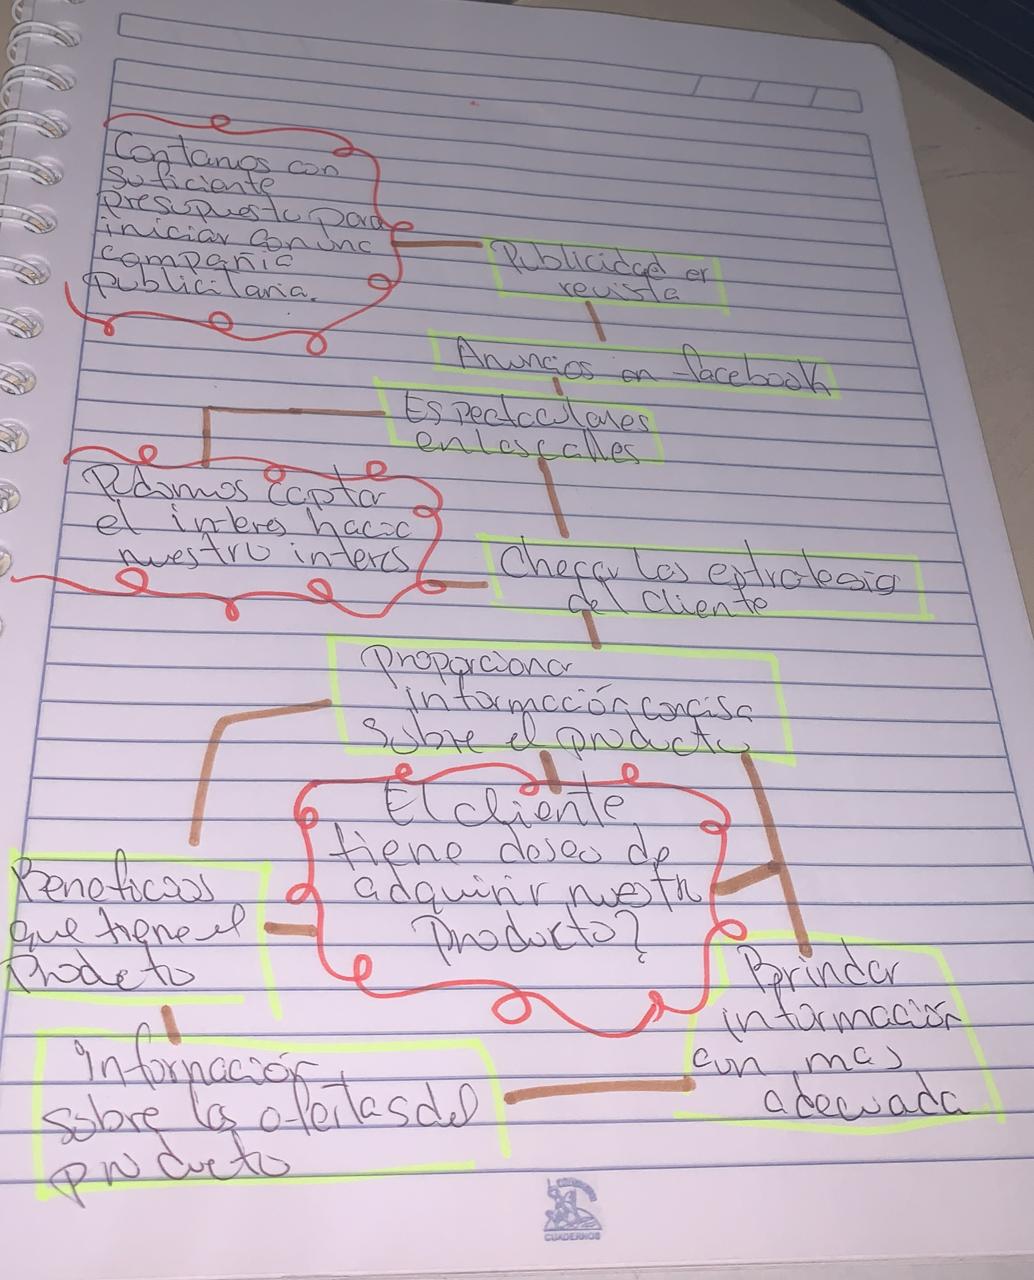 Contamos con
suficiente
presupuesto para
iniciar con una
compañia
publicitaria.
Publicidad en
revista
Anuncios en facebook
Espectaculares
en las calles
Pudomos captar
el interes hacia
nuestro interes
Checar las estrategia
del cliente
Proporcionar
información concisa
sobre el producto
El cliente
tiene deseo de
adquirir nuestro
Producto?
Beneficios
que tiene el
Producto
Brindar
información
aun mas
adecuada
Información
sobre las ofertas del
producto
CUADERNOS